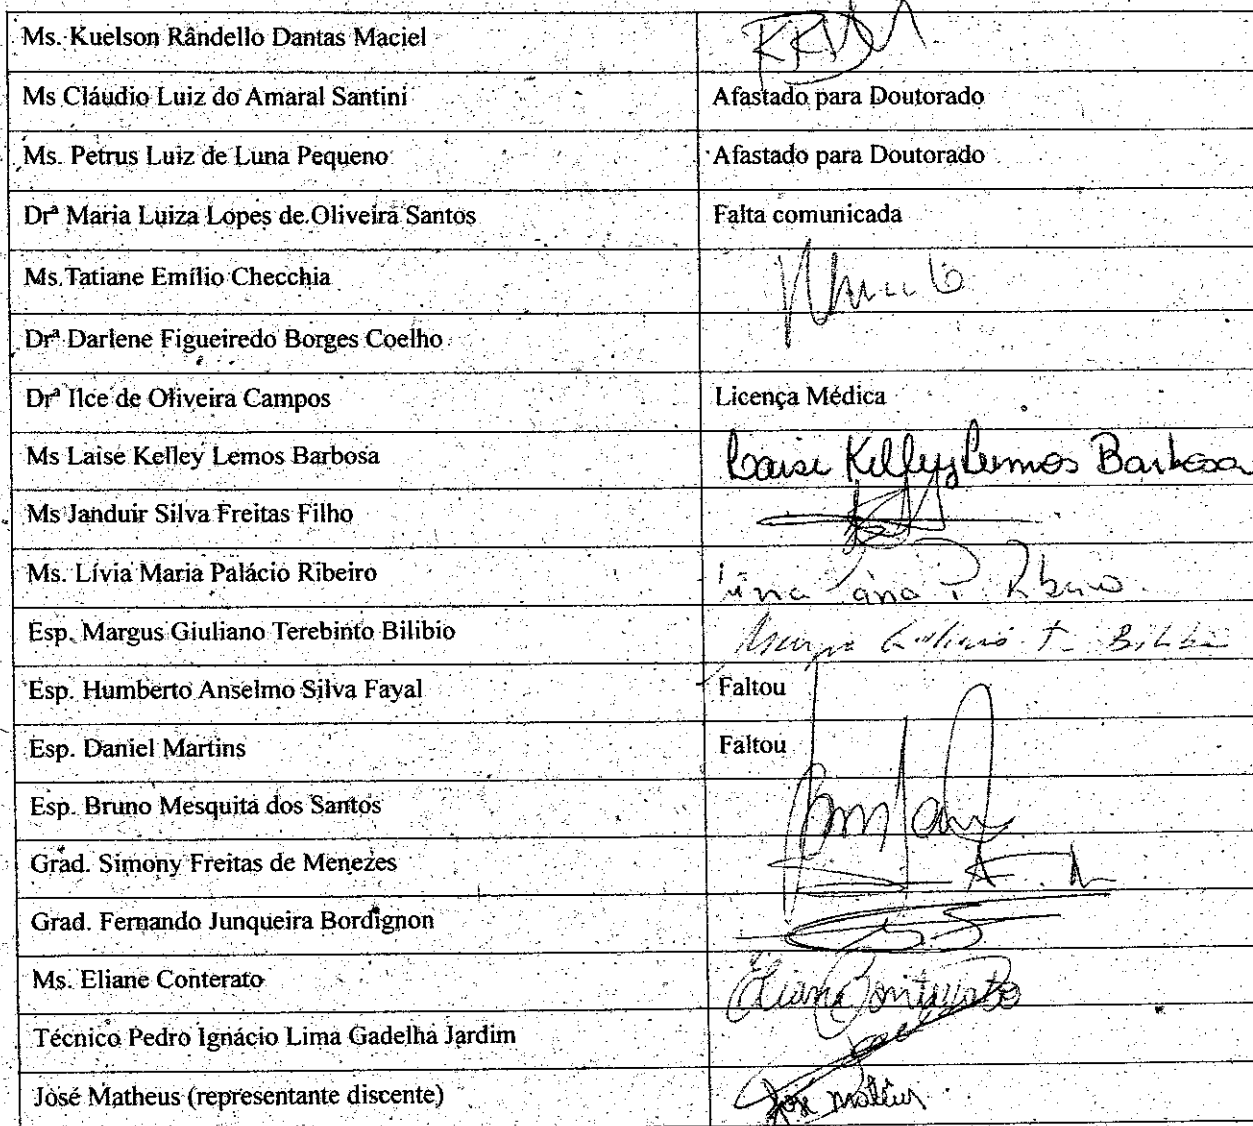 Ms. Kuelson Rândello Dantas Maciel
Ms Cláudio Luiz do Amaral Santini Afastado para Doutorado
Ms. Petrus Luiz de Luna Pequeno Afastado para Doutorado
Drª Maria Luiza Lopes de Oliveira Santos Falta comunicada
Ms. Tatiane Emílio Checchia
Drª Darlene Figueiredo Borges Coelho
Drª Ilce de Oliveira Campos Licença Médica
Ms Laise Kelley Lemos Barbosa Laise Kelley Lemos Barbosa
Ms Janduir Silva Freitas Filho
Ms. Lívia Maria Palácio Ribeiro
Esp. Margus Giuliano Terebinto Bilibio
Esp. Humberto Anselmo Silva Fayal Faltou
Esp. Daniel Martins Faltou
Esp. Bruno Mesquita dos Santos
Grad. Simony Freitas de Menezes
Grad. Fernando Junqueira Bordignon
Ms. Eliane Conterato Eliane Conterato
Técnico Pedro Ignácio Lima Gadelha Jardim
José Matheus (representante discente) José Matheus